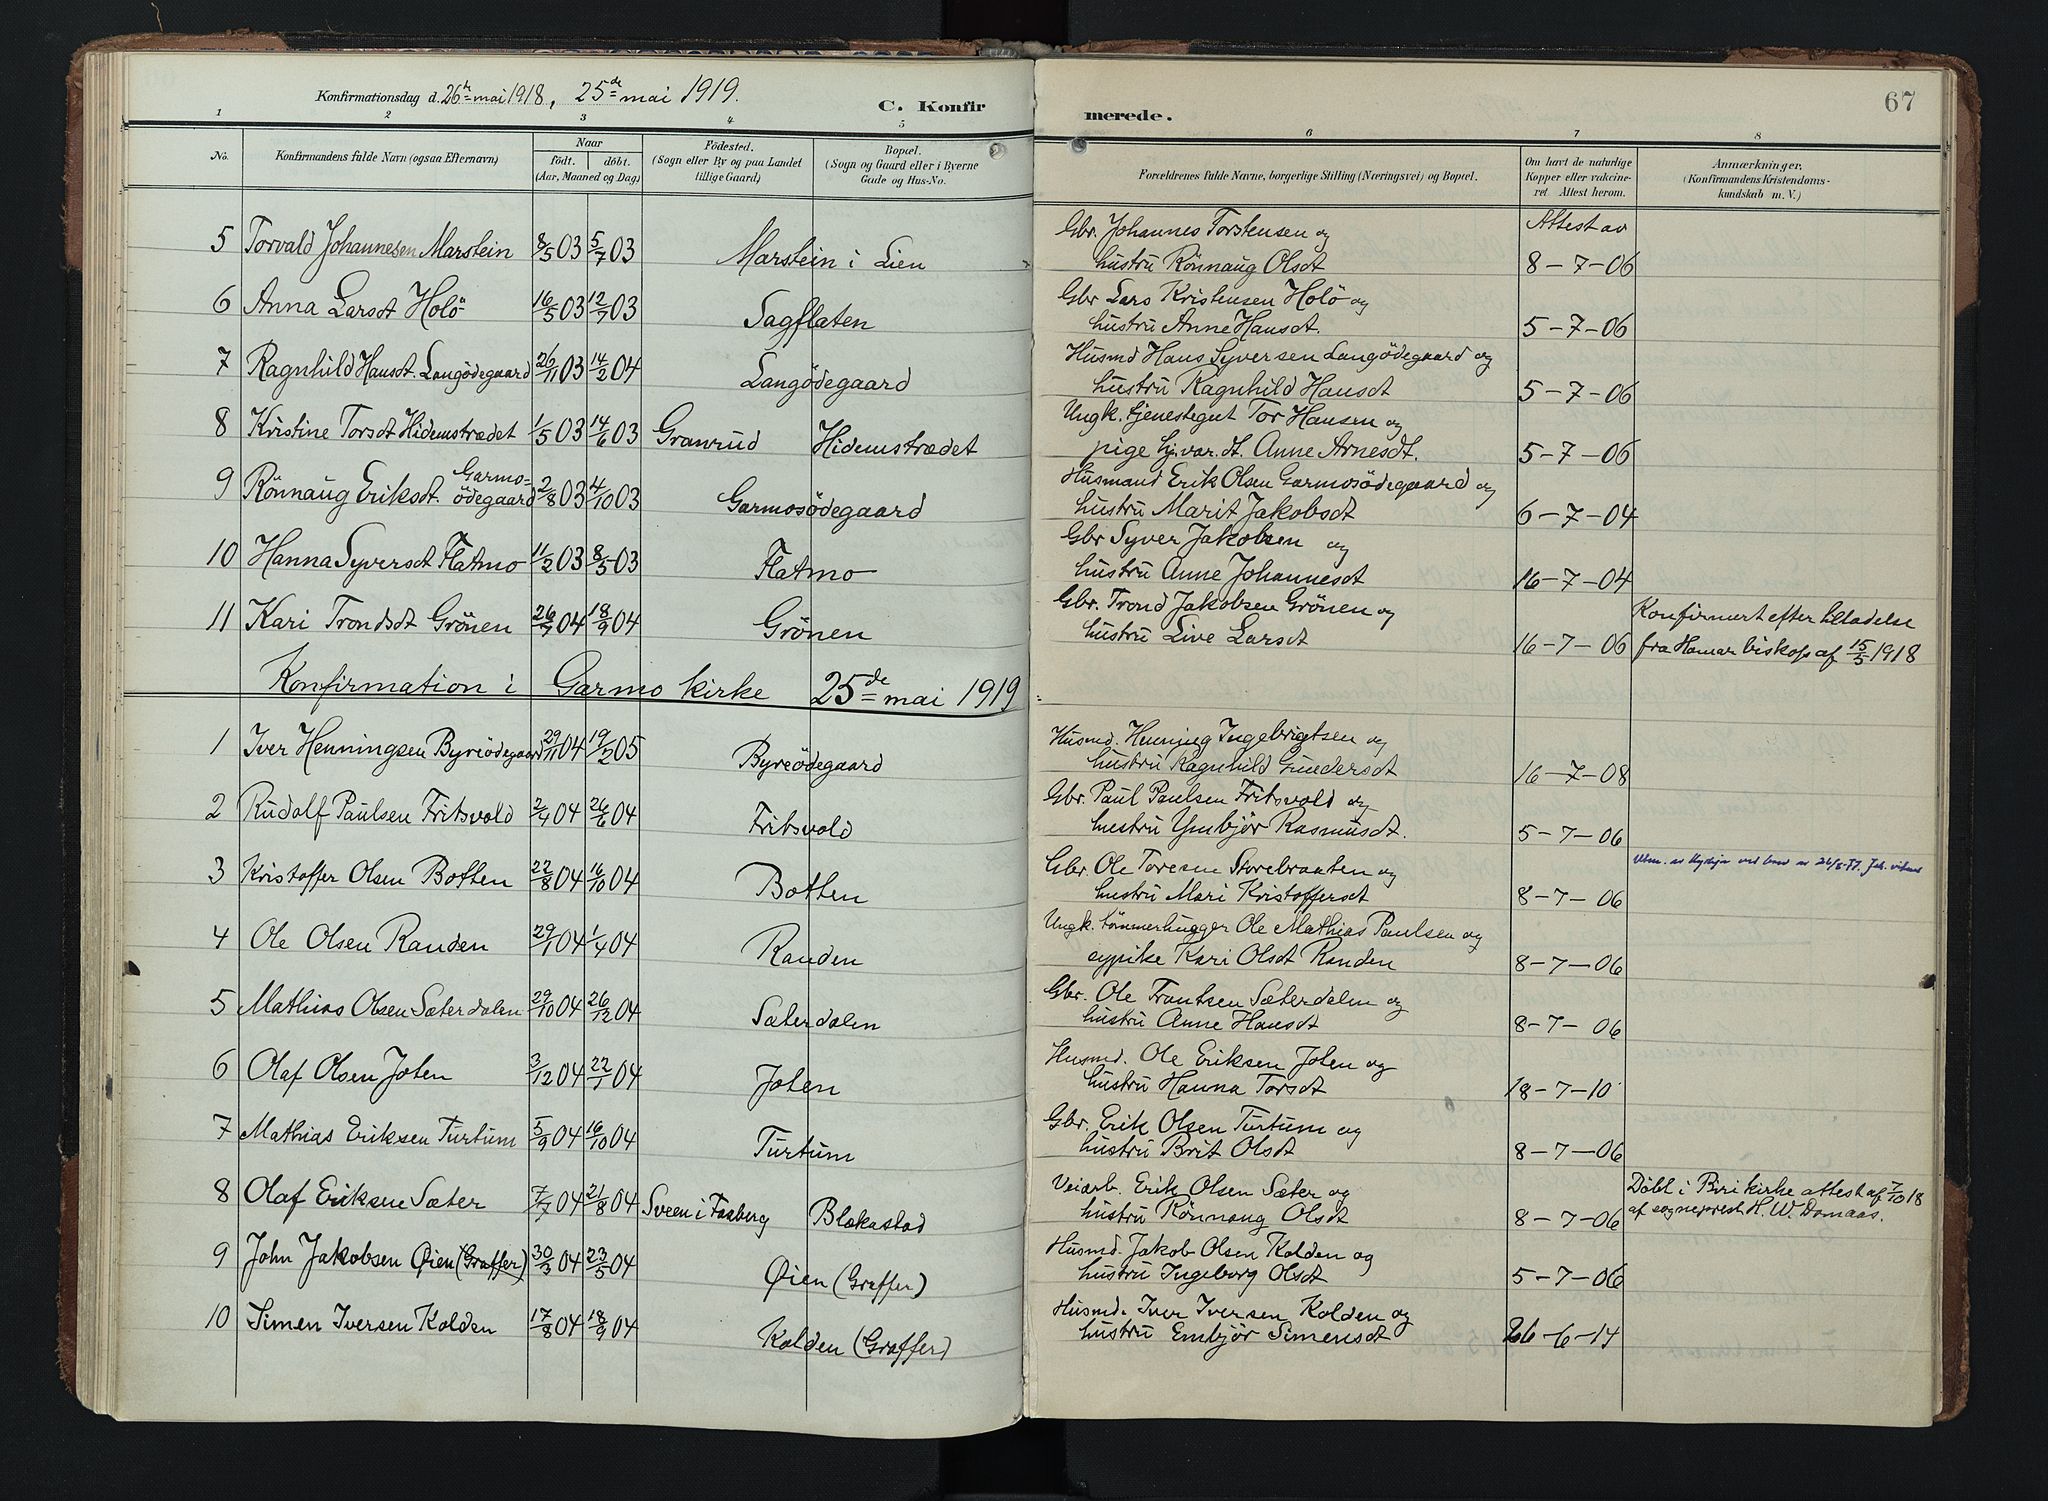 Konfirmationsdag d. 26de mai 1918, 25de mai 1919.
C. Konfirmerede.
67
1 2 3 4 5 6 7 8
No. Konfirmandens fulde Navn (ogsaa Efternavn) Naar født. døbt. (Aar, Maaned og Dag) Fødested. (Sogn eller By og paa Landet tillige Gaard) Bopæl. (Sogn og Gaard eller i Byerne Gade og Hus-No. Forældrenes fulde Navne, borgerlige Stilling (Næringsvei) og Bopæl. Om havt de naturlige Kopper eller vakcineret. Attest herom. Anmærkninger. (Konfirmandens Kristendomskundskab m. V.)
5 Torvald Johannesen Marstein 8/5 03 5/7 03 Marstein i Lien Gbr. Johannes Torstensen og Attest av
hustru Rönnaug Olsdt 8-7-06
6 Anna Larsdt Holö 16/5 03 12/7 03 Sagflaten Gbr Lars Kristensen Holö og
hustru Anne Hansdt. 5-7-06
7 Ragnhild Hansdt. Langödegaard 26/11 03 14/2 04 Langödegaard Husmd Hans Syversen Langödegaard og
hustru Ragnhild Hansdt 5-7-06
8 Kristine Torsdt Hidemstrædet 1/5 03 14/6 03 Granrud Hidemstrædet Ungk. tjenestegut Tor Hansen og
pige hj.var.dt. Anne Arnesdt. 5-7-06
9 Rönnaug Eriksdt. Garmoödegaard 2/8 03 4/10 03 Garmosödegaard Husmand Erik Olsen Garmosödegaard og
hustru Marit Jakobsdt 6-7-04
10 Hanna Syversdt Flatmo 11/2 03 8/5 03 Flatmo Gbr Syver Jakobsen og
hustru Anne Johannesdt 16-7-04
11 Kari Trondsdt Grönen 26/7 04 18/9 04 Grönen Gbr. Trond Jakobsen Grönen og Konfirmert efter tilladelse
hustru Live Larsdt 16-7-06 fra Hamar biskop af 15/5 1918
Konfirmation i Garmo kirke 25de mai 1919
1 Iver Henningsen Byreödegaard 29/11 04 19/2 05 Byreödegaard Husmd. Henning Ingebrigtsen og
hustru Ragnhild Gundersdt 16-7-08
2 Rudolf Paulsen Fritsvold 2/4 04 26/6 04 Fritsvold Gbr. Paul Paulsen Fritsvold og
hustru Ymbjör Rasmusdt. 5-7-06
3 Kristoffer Olsen Botten 22/8 04 16/10 04 Botten Gbr. Ole Toresen Storebraaten og
hustru Mari Kristoffersdt 8-7-06
4 Ole Olsen Randen 29/1 04 1/4 04 Randen Ungk. tömmerhugger Ole Mathias Paulsen og
sypike Kari Olsdt Randen 8-7-06
5 Mathias Olsen Sæterdalen 29/10 04 26/12 04 Sæterdalen Gbr. Ole Frantsen Sæterdalen og
hustru Anne Hansdt 8-7-06
6 Olaf Olsen Joten 3/12 04 22/1 04 Joten Husmd. Ole Eriksen Joten og
hustru Hanna Torsdt 18-7-10
7 Mathias Eriksen Turtum 5/9 04 16/10 04 Turtum Gbr. Erik Olsen Turtum og
hustru Brit Olsdt 8-7-06
8 Olaf Eriksen Sæter 7/7 04 21/8 04 Sveen i Faaberg Blekastad Veiarb. Erik Olsen Sæter og Döbt i Biri kirke attest af 7/10 18
hustru Rönnaug Olsdt 8-7-06 af sogneprest H. W. Domaas.
9 John Jakobsen Øien (Graffer) 30/3 04 23/5 04 Øien (Graffer) Husmd. Jakob Olsen Kolden og
hustru Ingeborg Olsdt 5-7-06
10 Simen Iversen Kolden 17/8 04 18/9 04 Kolden (Graffer) Husmd. Iver Iversen Kolden og
hustru Embjör Simensdt 26-6-14